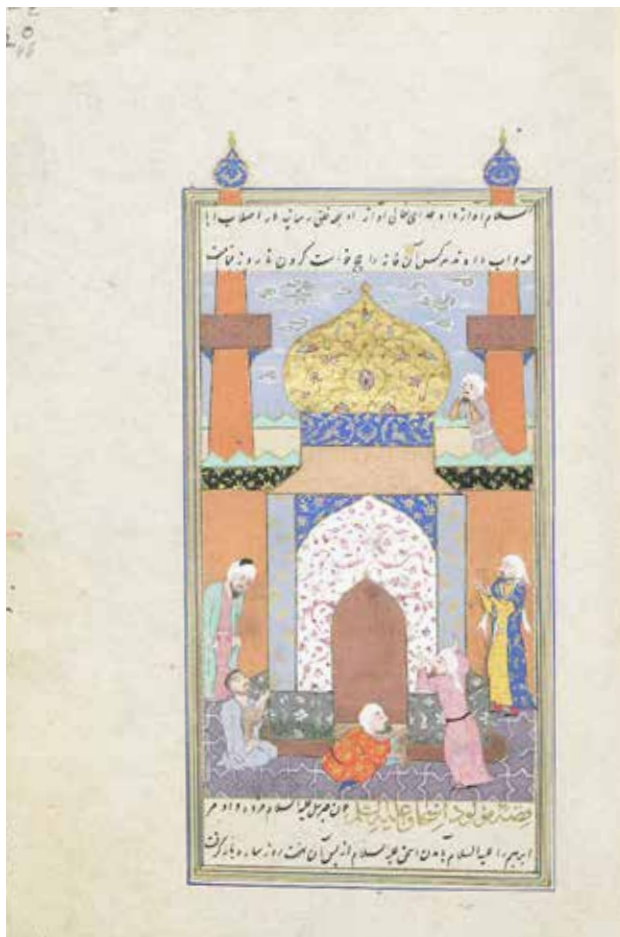 السلام اواز داد خدای تعالی آواز او بهمه خلق رسانید در اصلاب ابا
جواب دادند هر کس آن خانه را حج خواست کردن تا روز قیامت
قصه مولود اسحاق علیه السلم چون جبریل علیه السلام مژده داد مر
ابرهیم را علیه السلام بآمدن اسحق علیه السلام از پس آن هفت روز ساره بار گرفت